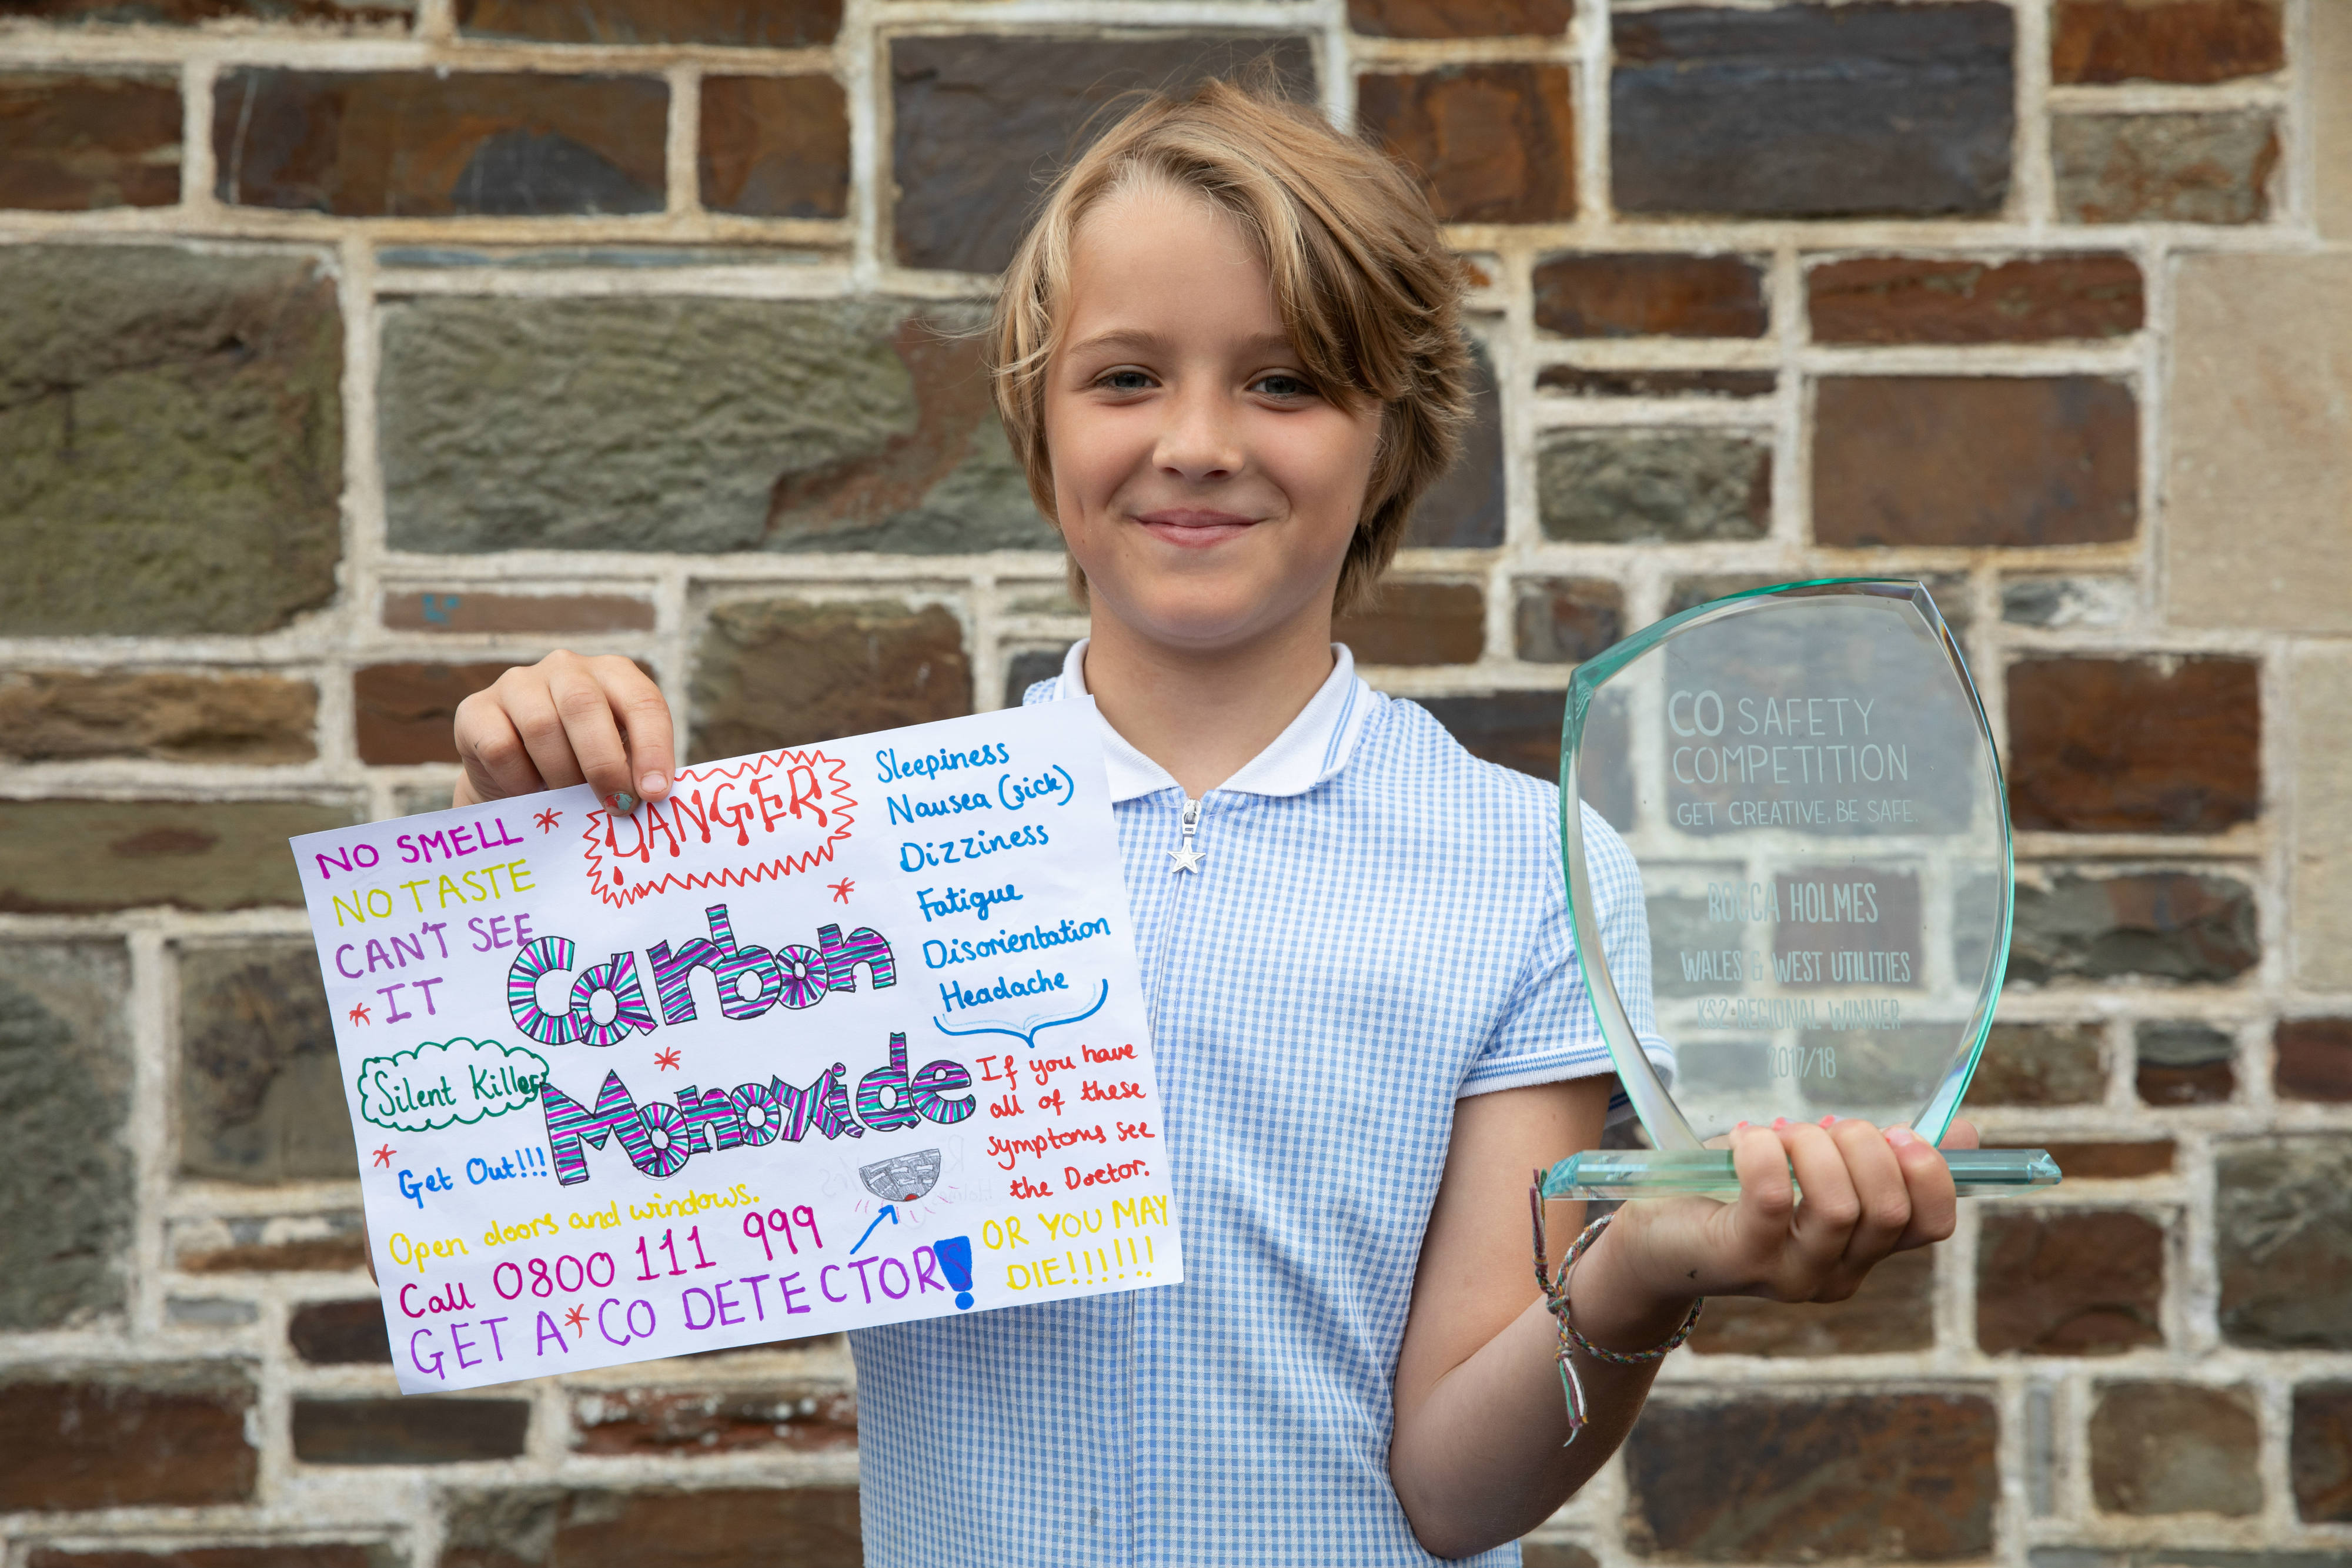 NO SMELL
NO TASTE
CAN'T SEE
IT
Silent Killer
Get Out!!!
Open doors and windows.
Call 0800 111 999
GET A CO DETECTOR!
DANGER
Carbon
Monoxide
Sleepiness
Nausea (sick)
Dizziness
Fatigue
Disorientation
Headache
If you have
all of these
symptoms see
the Doctor.
OR YOU MAY
DIE!!!!!!
CO SAFETY
COMPETITION
GET CREATIVE, BE SAFE.
BOCCA HOLMES
WALES & WEST UTILITIES
KS2 REGIONAL WINNER
2017/18